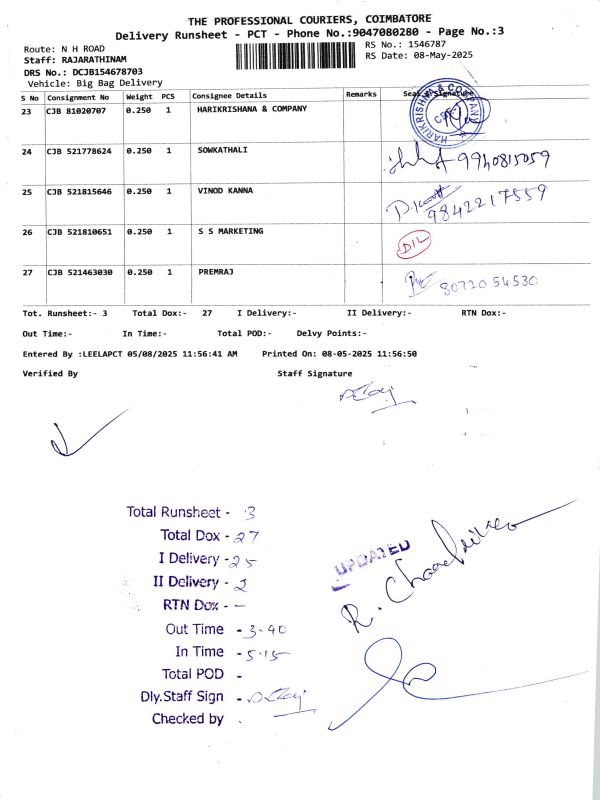 THE PROFESSIONAL COURIERS, COIMBATORE
Delivery Runsheet - PCT - Phone No.:9047080280 - Page No.:3
Route: N H ROAD
RS No.: 1546787
Staff: RAJARATHINAM
RS Date: 08-May-2025
DRS No.: DCJB154678703
Vehicle: Big Bag Delivery
S No Consignment No Weight PCS Consignee Details Remarks Seal Signature
23 CJB 81020707 0.250 1 HARIKRISHANA & COMPANY
HARIKRISHNA & COMPANY
24 CJB 521778624 0.250 1 SOWKATHALI 9940815059
25 CJB 521815646 0.250 1 VINOD KANNA 9842217559
26 CJB 521810651 0.250 1 S S MARKETING D/L
27 CJB 521463030 0.250 1 PREMRAJ 8072054530
Tot. Runsheet:- 3 Total Dox:- 27 I Delivery:- II Delivery:- RTN Dox:-
Out Time:- In Time:- Total POD:- Delvy Points:-
Entered By :LEELAPCT 05/08/2025 11:56:41 AM Printed On: 08-05-2025 11:56:50
Verified By Staff Signature
Total Runsheet - 3
Total Dox - 27
I Delivery - 25
II Delivery - 2
RTN Dox - -
Out Time - 3-40
In Time - 5-15
Total POD -
Dly.Staff Sign -
Checked by .
UPDATED